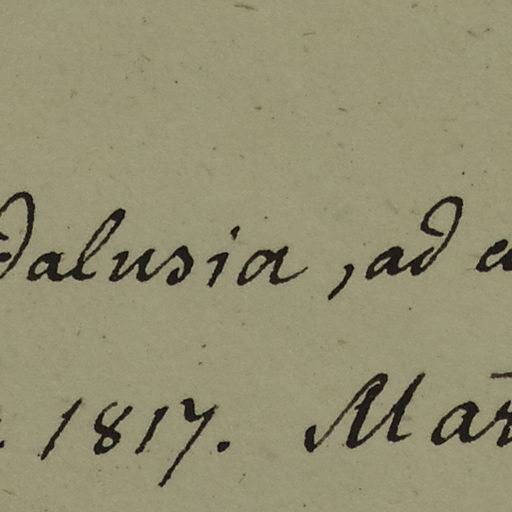 dalusia, ad
1817. Mar